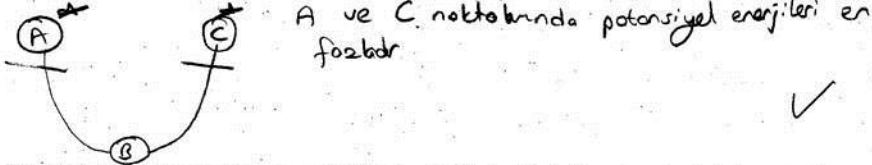 A ve C noktalarında potansiyel enerjileri en
fazladır
A
C
B